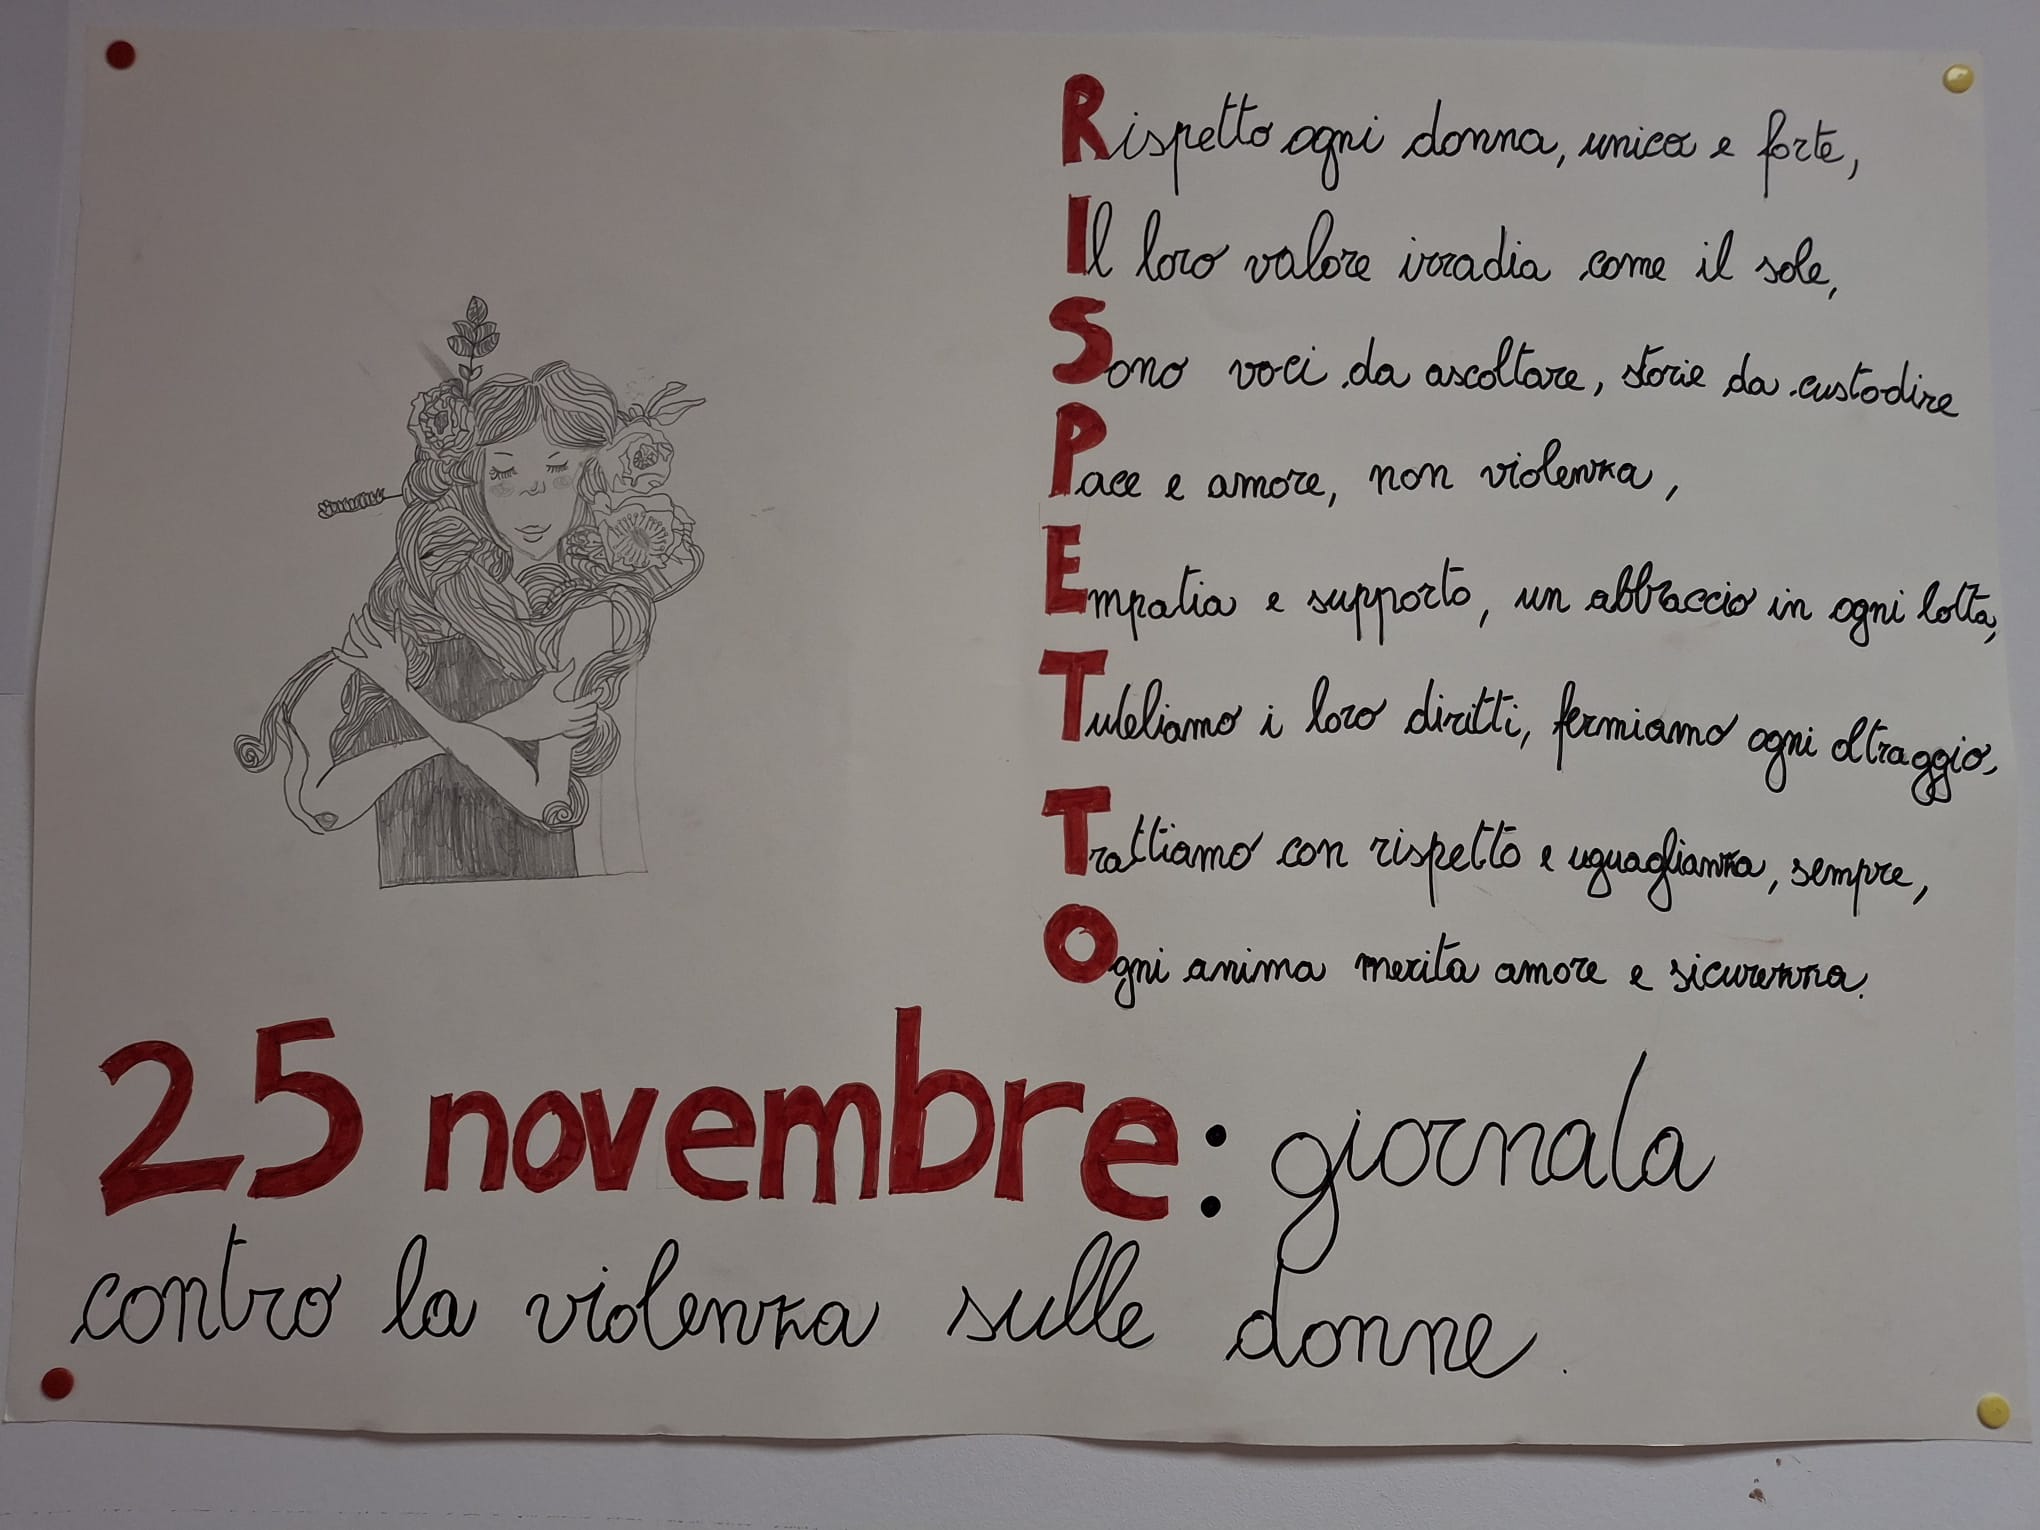 Rispetto ogni donna, unica e forte,
Il loro valore irradia come il sole,
Sono voci da ascoltare, storie da custodire
Pace e amore, non violenza,
Empatia e supporto, un abbraccio in ogni lotta,
Tuteliamo i loro diritti, fermiamo ogni oltraggio.
Trattiamo con rispetto e uguaglianza, sempre,
Ogni anima merita amore e sicurezza.
25 novembre: giornata
contro la violenza sulle donne.